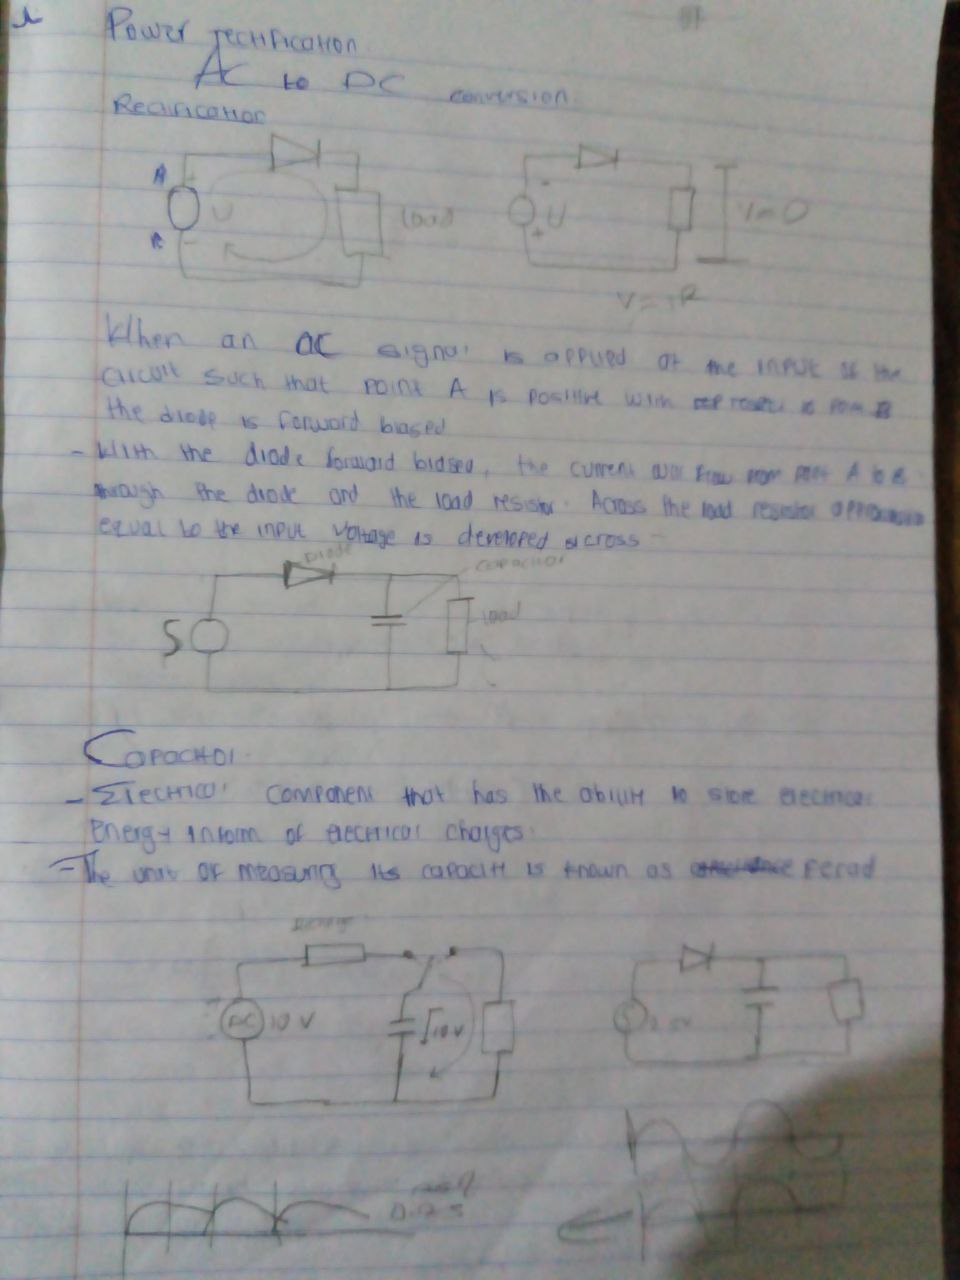 Power rectification
AC to DC conversion
Rectification
A
U
load
B
U
V=0
V=IR
When an ac signal is applied at the input of the
circuit such that point A is positive with respect to point B
the diode is forward biased
- With the diode forward biased, the current will flow from point A to B
through the diode and the load resistor. Across the load resistor
equal to the input voltage is developed across
Diode
capacitor
S
load
Capacitor
- Electrical component that has the ability to store electrical
Energy inform of electrical charges.
- The unit of measuring its capacity is known as Ferad
DC 10 V
10V